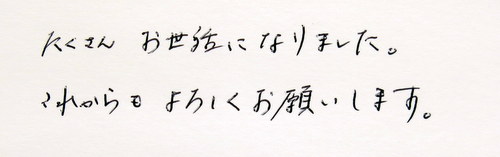 たくさん お世話になりました。
これからも よろしくお願いします。